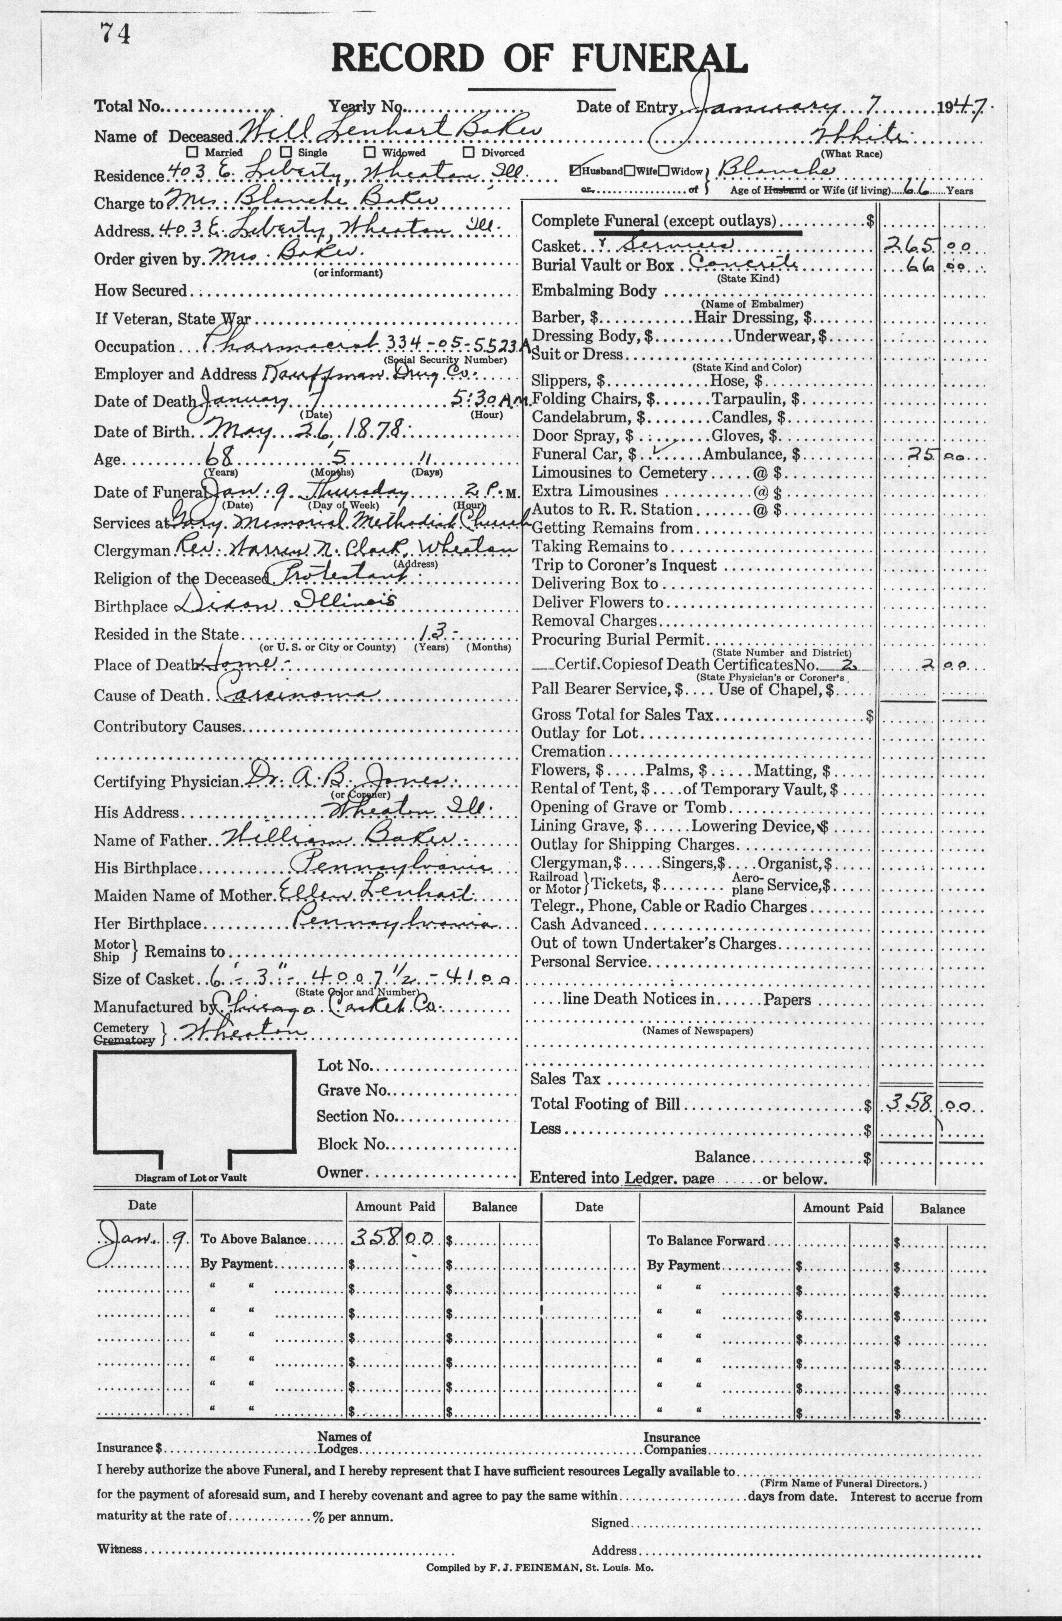 74
RECORD OF FUNERAL
Total No. Yearly No. Date of Entry January 7 1947
Name of Deceased Will Lenhart Baker White
☐ Married ☐ Single ☐ Widowed ☐ Divorced (What Race)
Residence 403 E. Liberty, Wheaton Ill. ☑ Husband ☐ Wife ☐ Widow } Blanche
or of } Age of Husband or Wife (if living) 66 Years
Charge to Mrs. Blanche Baker
Address 403 E. Liberty, Wheaton Ill.
Order given by Mrs. Baker
(or informant)
How Secured
If Veteran, State War
Occupation Pharmacist 334-05-5523A
(Social Security Number)
Employer and Address Drug Co.
Date of Death January 7 5:30 A.M.
(Date) (Hour)
Date of Birth May 26 1878
Age 68 5 11
(Years) (Months) (Days)
Date of Funeral Jan. 9 Thursday 2 P.M.
(Date) (Day of Week) (Hour)
Services at Gary Memorial Methodist Church
Clergyman Rev. Warren N. Clark, Wheaton
(Address)
Religion of the Deceased Protestant
Birthplace Dixon Illinois
Resided in the State 13 -
(or U. S. or City or County) (Years) (Months)
Place of Death Home -
Cause of Death Carcinoma
Contributory Causes
Certifying Physician Dr. A. B. Jones
(or Coroner)
His Address Wheaton Ill.
Name of Father William Baker
His Birthplace Pennsylvania
Maiden Name of Mother Ellen Lenhart
Her Birthplace Pennsylvania
Motor Ship } Remains to
Size of Casket 6' - 3" - 4007½ - 4100
(State Color and Number)
Manufactured by Chicago Casket Co.
Cemetery Crematory } Wheaton
Lot No.
Grave No.
Section No.
Block No.
Owner
Diagram of Lot or Vault
Complete Funeral (except outlays) $
Casket & Services 265 00
Burial Vault or Box Concrete 66 00
(State Kind)
Embalming Body
(Name of Embalmer)
Barber, $ Hair Dressing, $
Dressing Body, $ Underwear, $
Suit or Dress
(State Kind and Color)
Slippers, $ Hose, $
Folding Chairs, $ Tarpaulin, $
Candelabrum, $ Candles, $
Door Spray, $ Gloves, $
Funeral Car, $ ✓ Ambulance, $ 25 00
Limousines to Cemetery @ $
Extra Limousines @ $
Autos to R. R. Station @ $
Getting Remains from
Taking Remains to
Trip to Coroner's Inquest
Delivering Box to
Deliver Flowers to
Removal Charges
Procuring Burial Permit
(State Number and District)
Certif. Copies of Death Certificates No. 2 2 00
(State Physician's or Coroner's
Pall Bearer Service, $ Use of Chapel, $
Gross Total for Sales Tax $
Outlay for Lot
Cremation
Flowers, $ Palms, $ Matting, $
Rental of Tent, $ of Temporary Vault, $
Opening of Grave or Tomb
Lining Grave, $ Lowering Device, $
Outlay for Shipping Charges
Clergyman, $ Singers, $ Organist, $
Railroad or Motor } Tickets, $ Aeroplane Service, $
Telegr., Phone, Cable or Radio Charges
Cash Advanced
Out of town Undertaker's Charges
Personal Service
line Death Notices in Papers
(Names of Newspapers)
Sales Tax
Total Footing of Bill $ 358 00
Less $
Balance $
Entered into Ledger, page or below.
Date Amount Paid Balance Date Amount Paid Balance
Jan. 9 To Above Balance 358 00 $ To Balance Forward $
By Payment $ $ By Payment $ $
" " $ $ " " $ $
" " $ $ " " $ $
" " $ $ " " $ $
" " $ $ " " $ $
" " $ $ " " $ $
" " $ $ " " $ $
Insurance $ Names of Lodges Insurance Companies
I hereby authorize the above Funeral, and I hereby represent that I have sufficient resources Legally available to
(Firm Name of Funeral Directors.)
for the payment of aforesaid sum, and I hereby covenant and agree to pay the same within days from date. Interest to accrue from
maturity at the rate of % per annum.
Signed
Witness Address
Compiled by F. J. FEINEMAN, St. Louis. Mo.